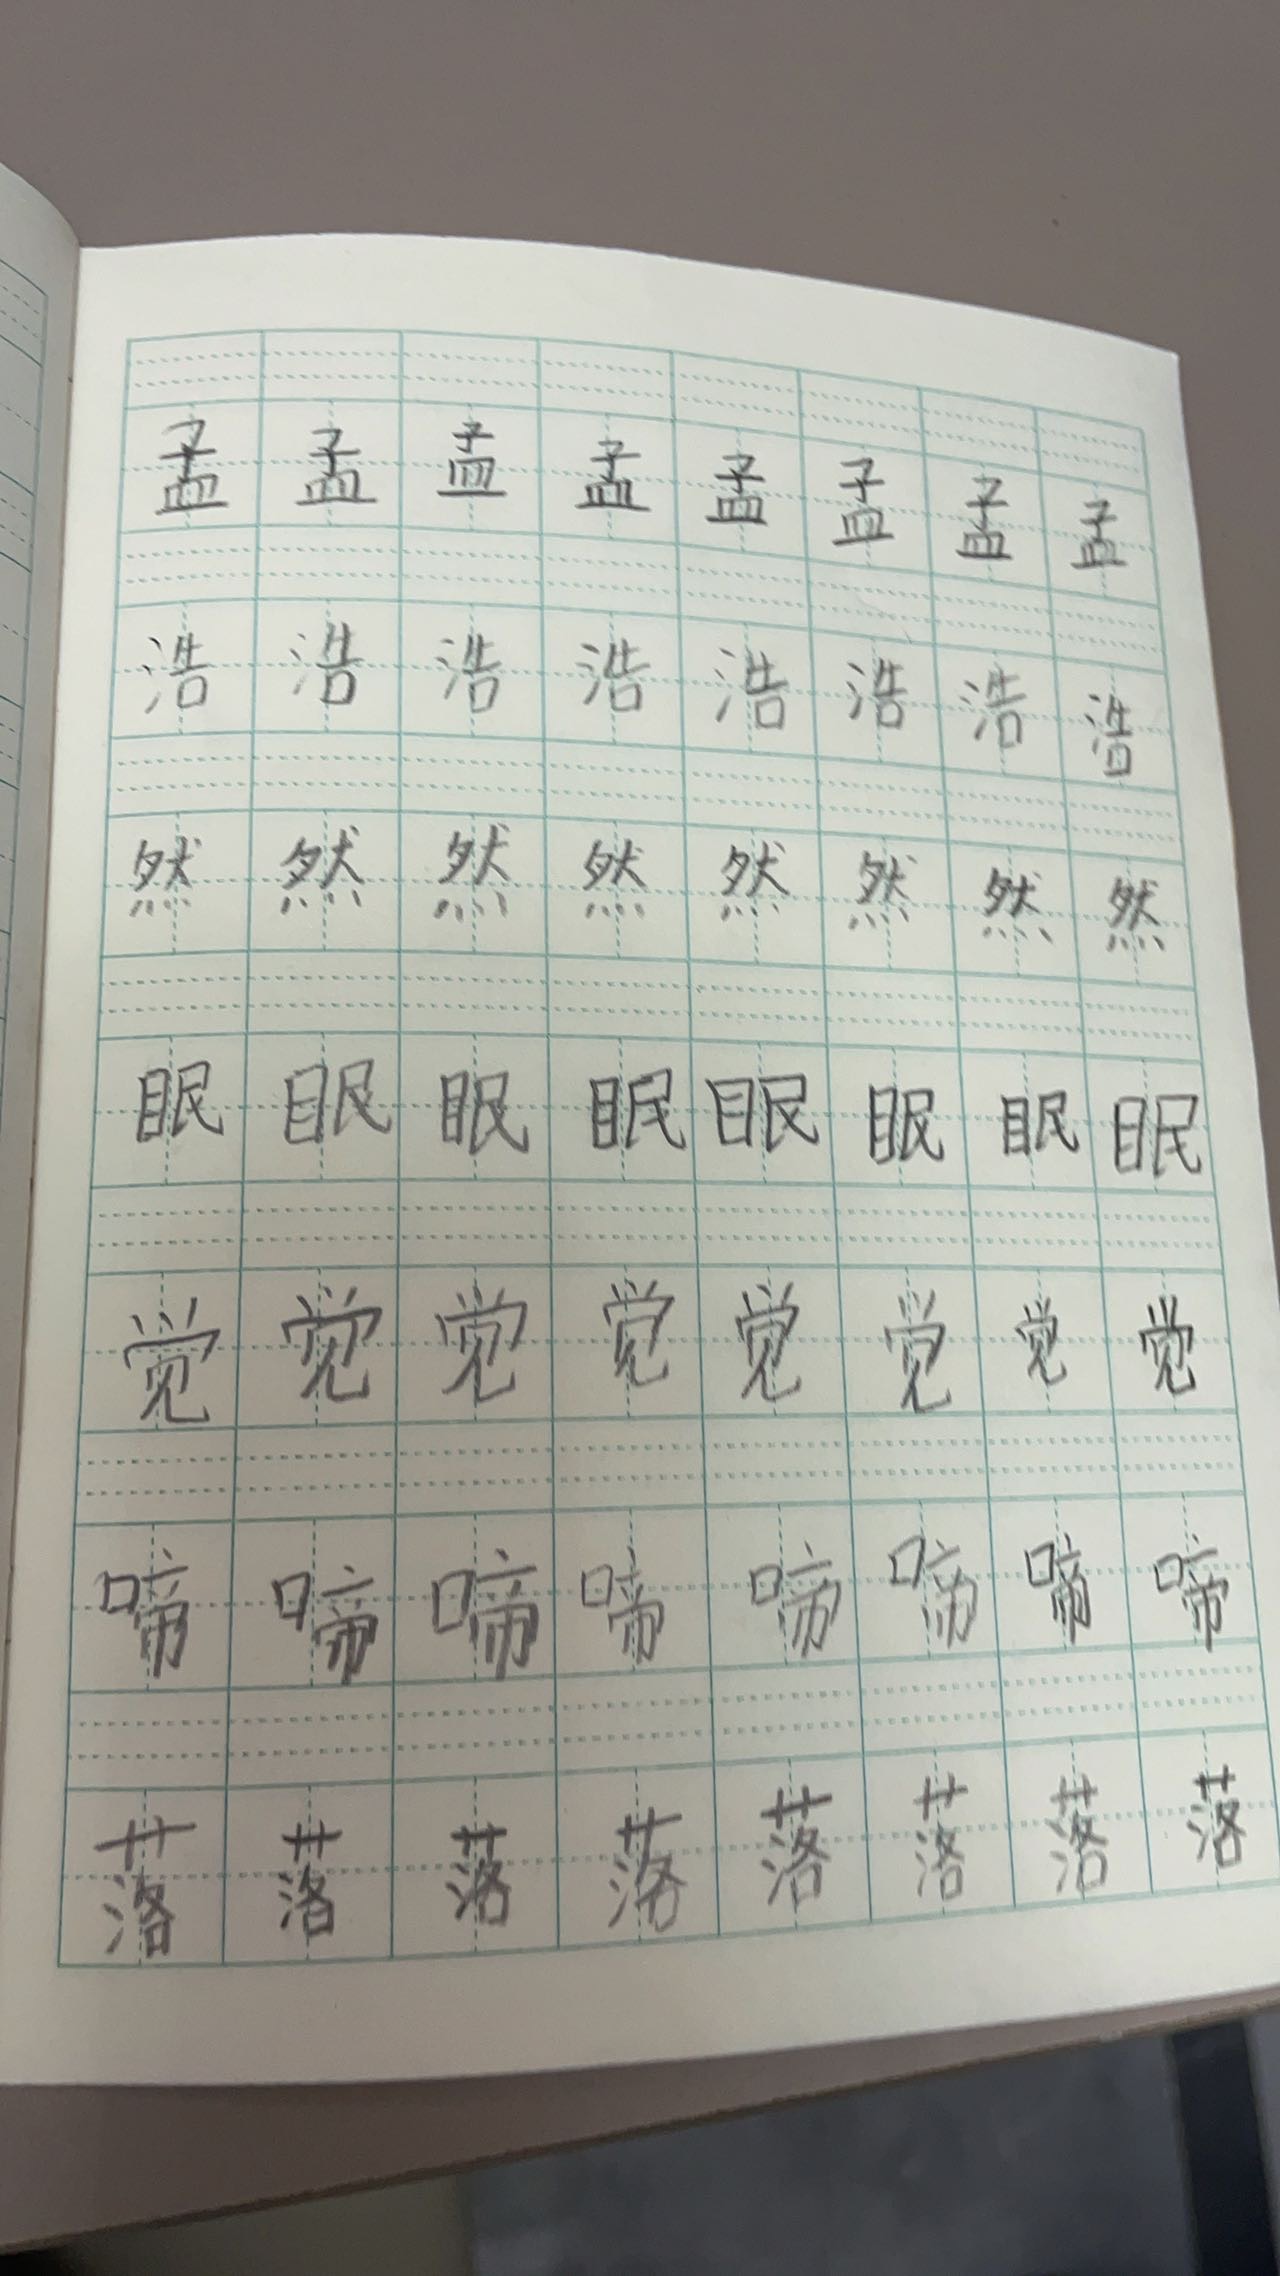 孟孟孟孟孟孟孟孟
浩浩浩浩浩浩浩浩
然然然然然然然然
眠眠眠眠眠眠眠眠
觉觉觉觉觉觉觉觉
啼啼啼啼啼啼啼啼
落落落落落落落落